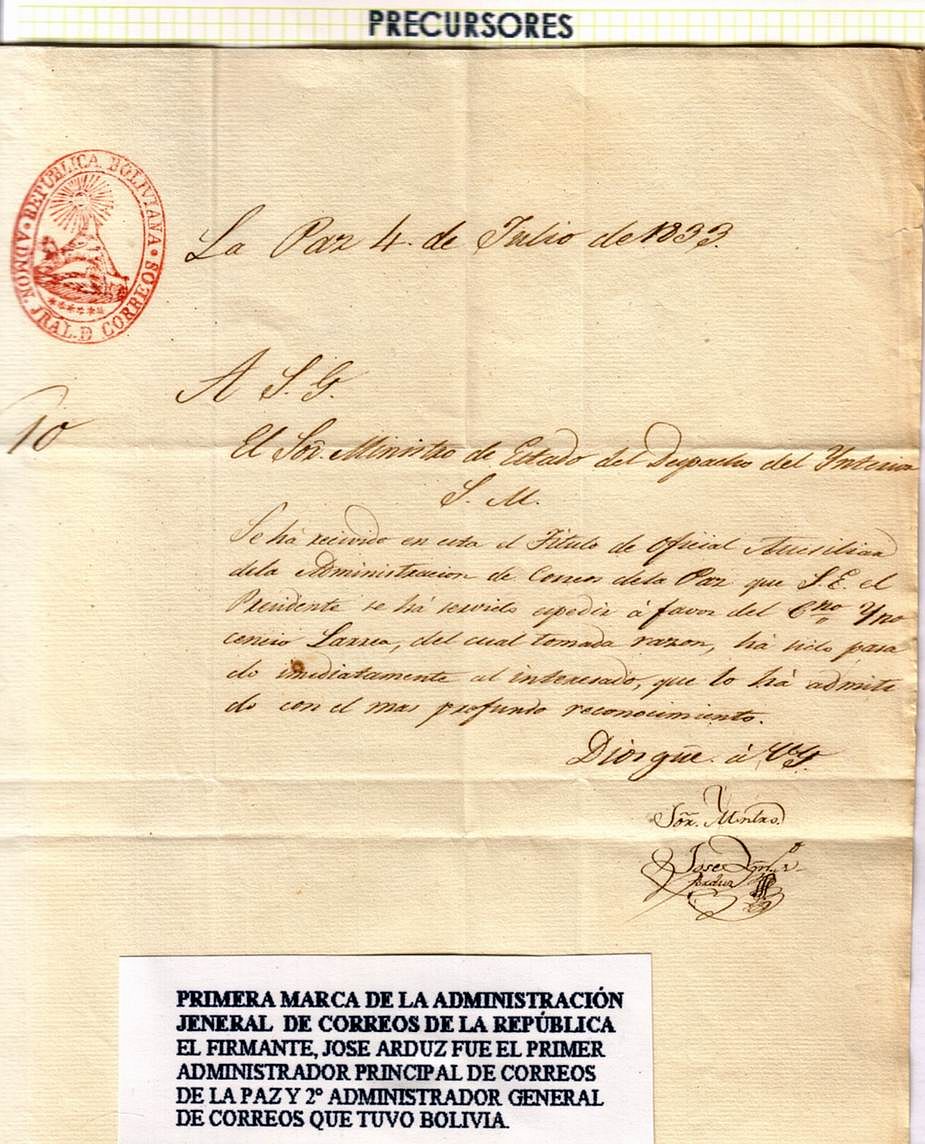 PRECURSORES
REPÚBLICA BOLIVIANA
ADMON. JRAL. D CORREOS
La Paz 4. de Julio de 1833.
A S. G.
10
El Sor. Ministro de Estado del Despacho del Ynterior
S. M.
Se há recivido en esta el Titulo de Oficial Auxiliar
dela Administracion de Correos dela Paz que S. E. el
Presidente se há servido espedir á favor del Cno. Yno
cencio Larrea, del cual tomada razon, há sido pasa
do imediatamente al interesado, que lo há admiti
do con el mas profundo reconocimiento.
Dios gue. á V.G.
Sor. Mntro.
Jose
Arduz
PRIMERA MARCA DE LA ADMINISTRACIÓN
JENERAL DE CORREOS DE LA REPÚBLICA
EL FIRMANTE, JOSE ARDUZ FUE EL PRIMER
ADMINISTRADOR PRINCIPAL DE CORREOS
DE LA PAZ Y 2º ADMINISTRADOR GENERAL
DE CORREOS QUE TUVO BOLIVIA.